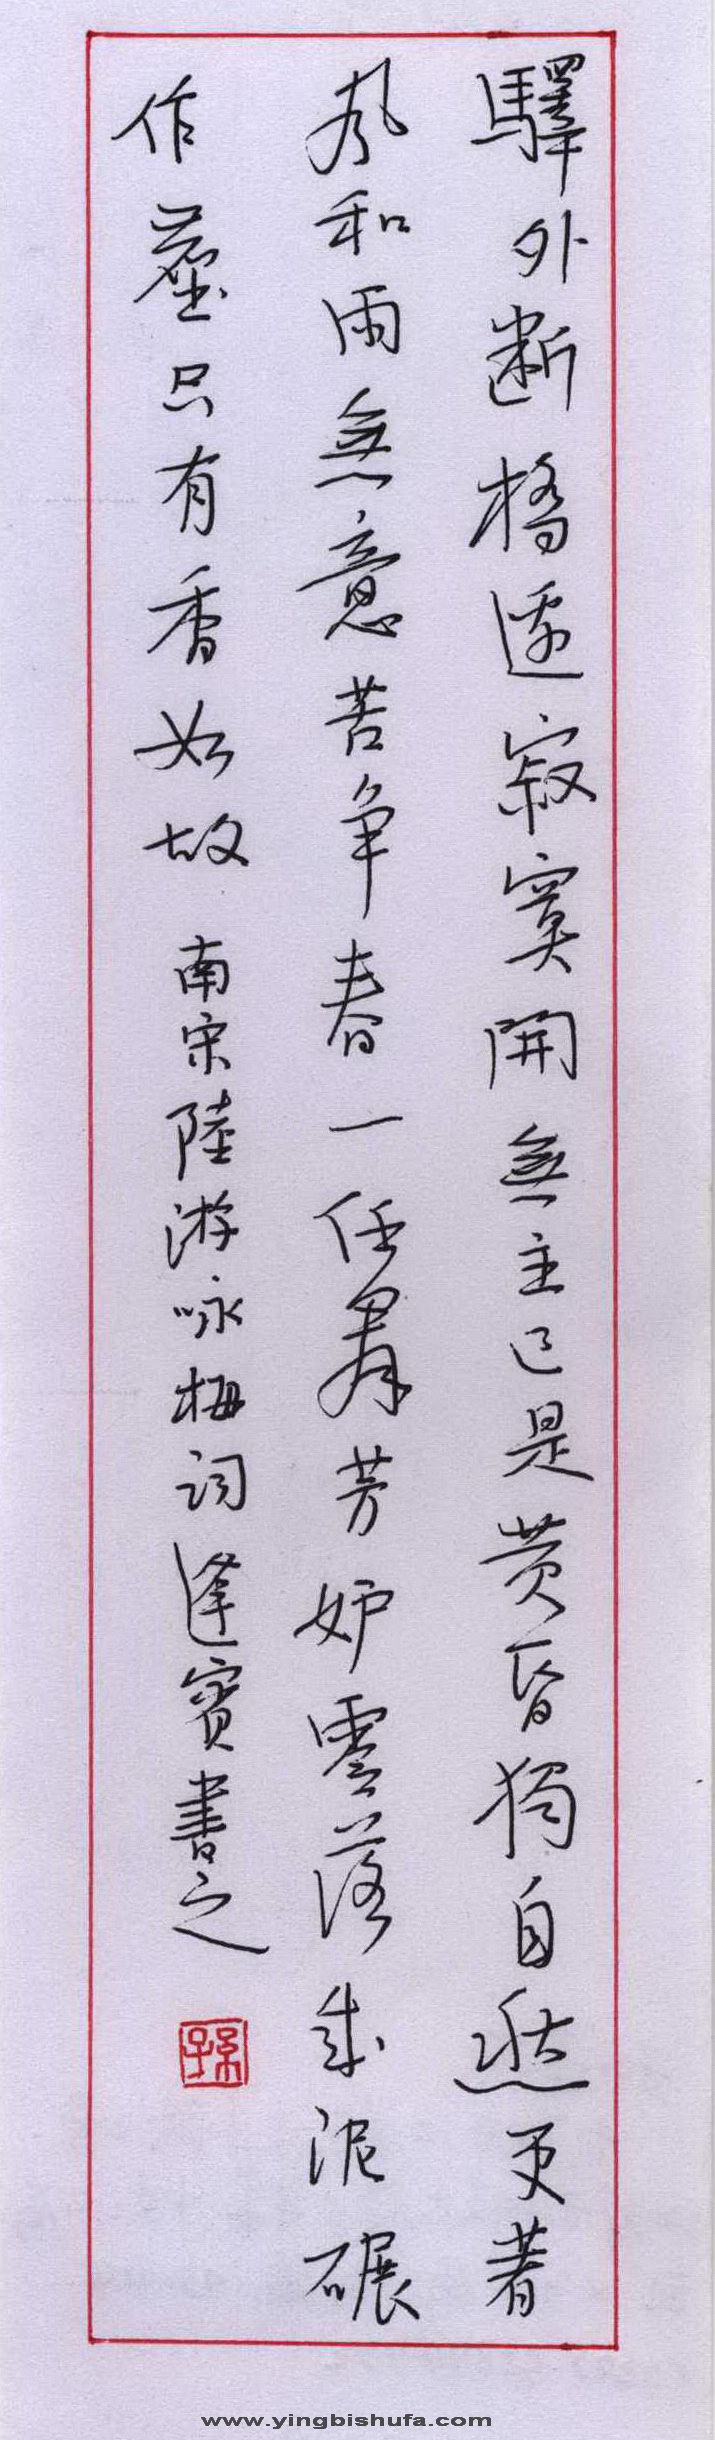 驛外断橋邊寂寞開無主已是黄昏獨自愁更著
風和雨無意苦争春一任羣芳妒零落成泥碾
作塵只有香如故 南宋陸游咏梅词逢賓書之
孫
www.yingbishufa.com